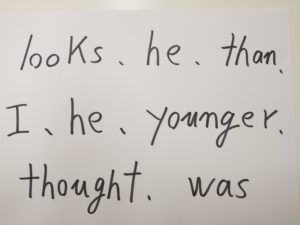 looks、he、than、
I、he、younger、
thought、was